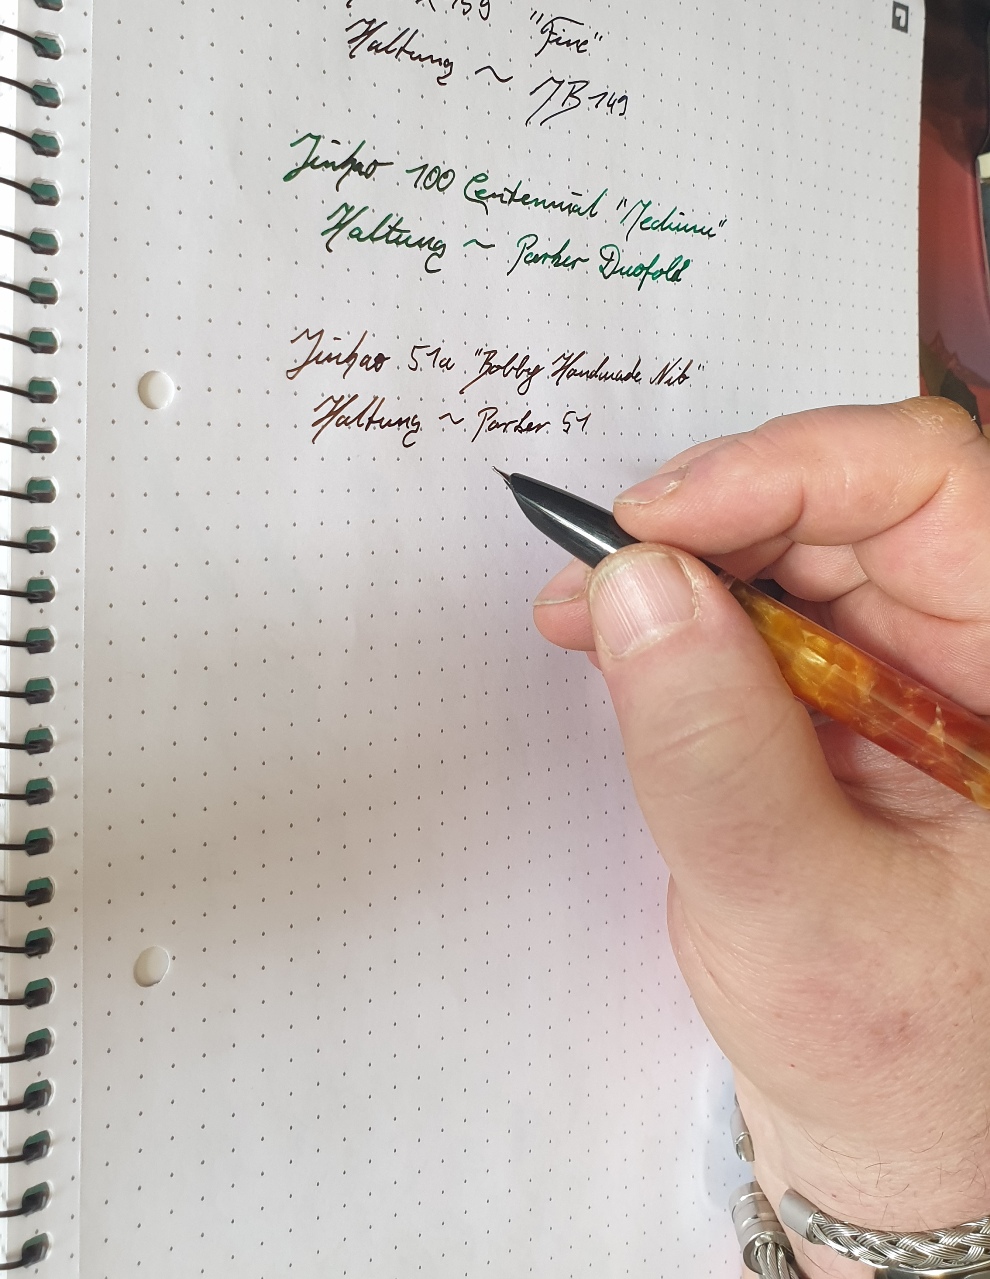 159 "Fine"
Haltung ~ MB 149
Jinhao 100 Centennial "Medium"
Haltung ~ Parker Duofold
Jinhao 51a "Bobby Handmade Nib"
Haltung ~ Parker 51